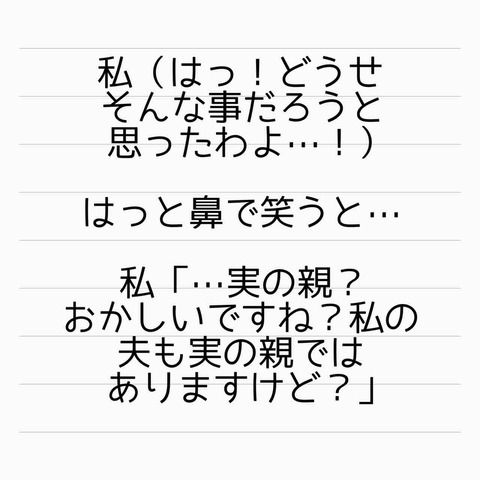 私（はっ！どうせ
そんな事だろうと
思ったわよ…！）
はっと鼻で笑うと…
私「…実の親？
おかしいですね？私の
夫も実の親では
ありますけど？」